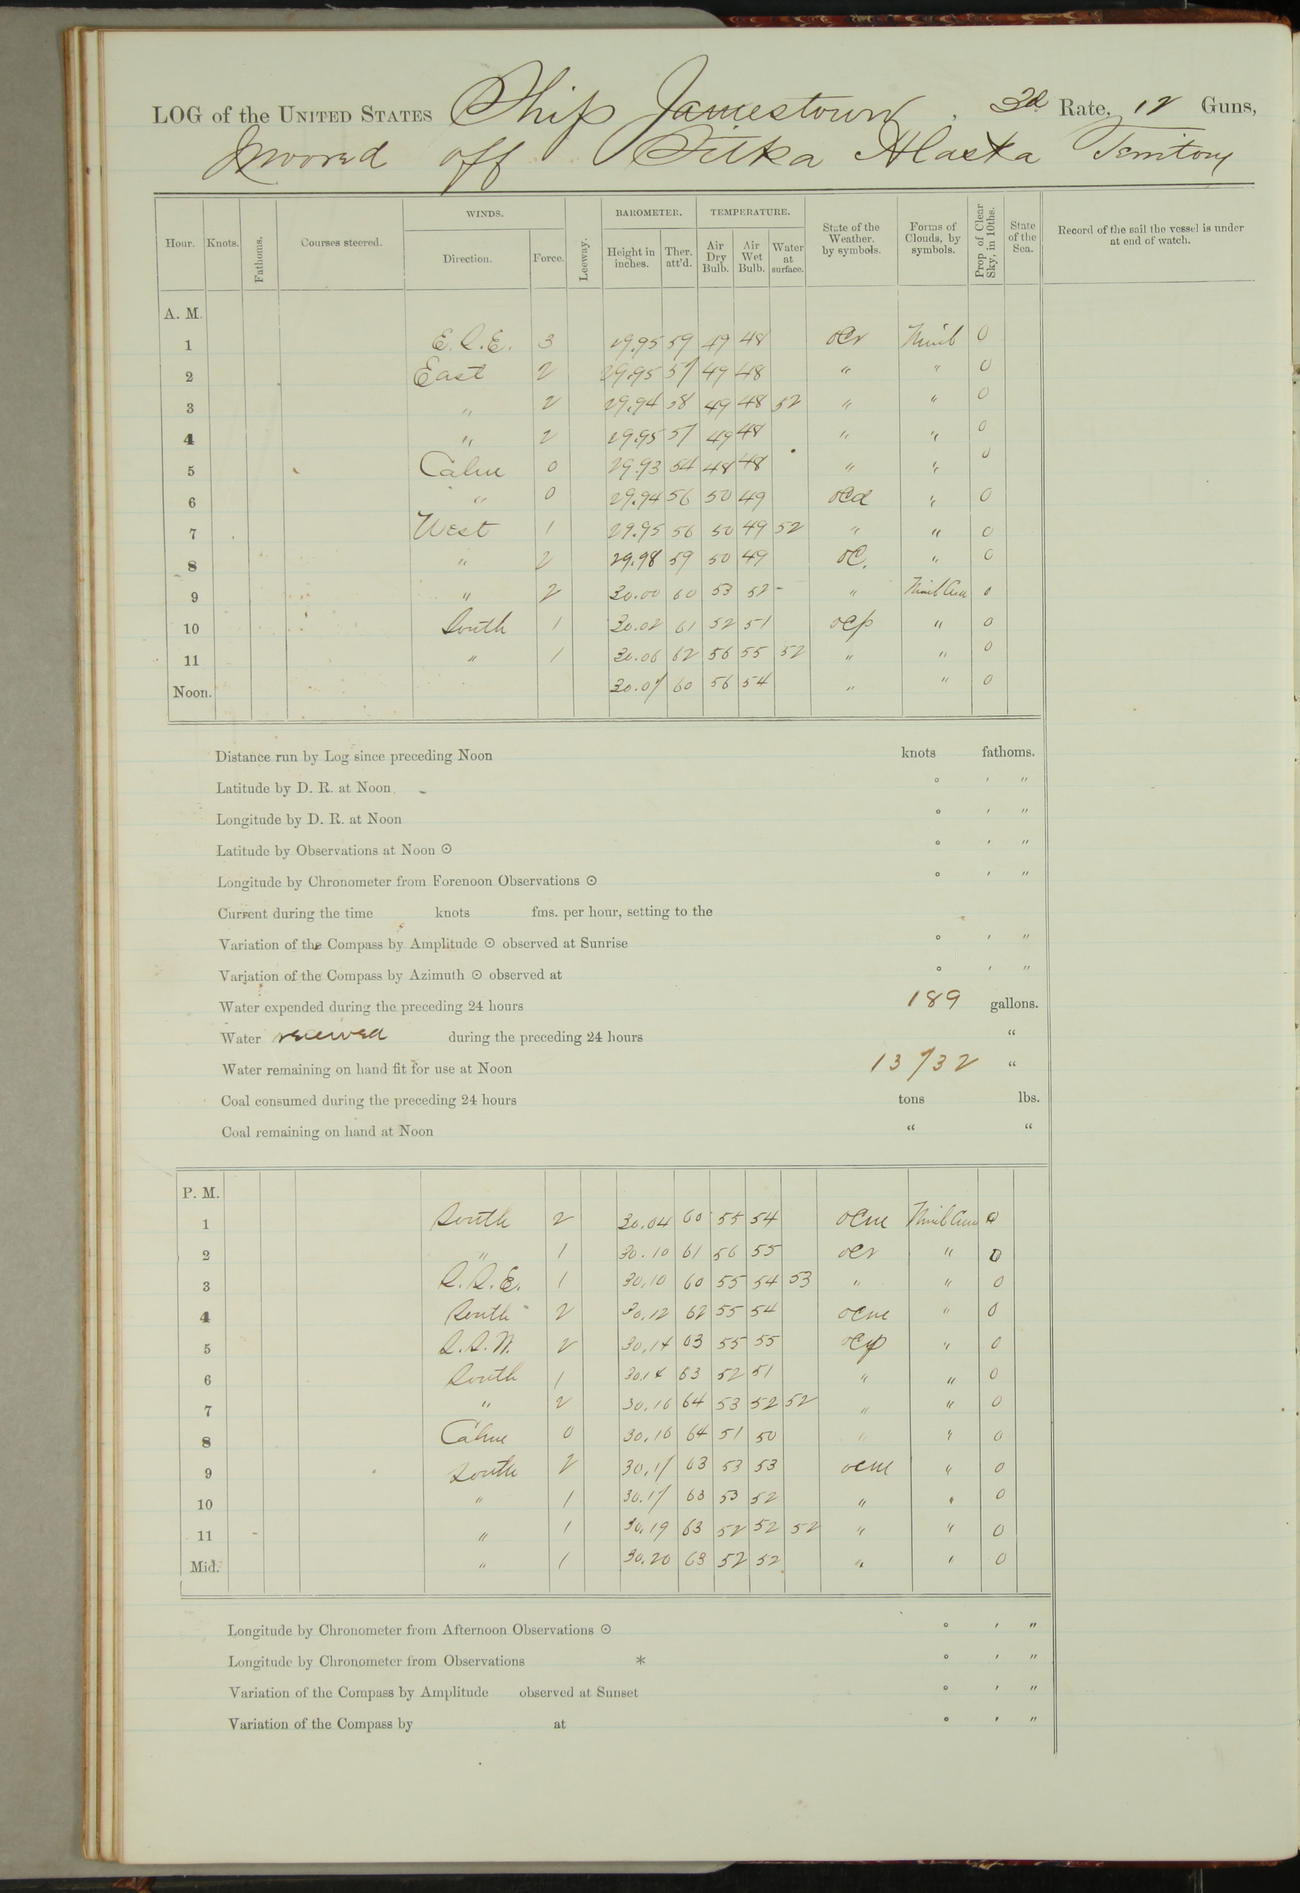 LOG of the UNITED STATES Ship Jamestown, 3d Rate, 12 Guns,
Moored off Sitka Alaska Territory
Hour. Knots. Fathoms. Courses steered. WINDS. Direction. Force. Leeway. BAROMETER. Height in inches. Ther. att'd. TEMPERATURE. Air Dry Bulb. Air Wet Bulb. Water at surface. State of the Weather. by symbols. Forms of Clouds, by symbols. Prop. of Clear Sky, in 10ths. State of the Sea. Record of the sail the vessel is under at end of watch.
A. M.
1 E.S.E. 3 29.95 59 49 48 ocr Nimb 0
2 East 2 29.95 57 49 48 " " 0
3 " 2 29.94 58 49 48 52 " " 0
4 " 2 29.95 57 49 48 " " 0
5 Calm 0 29.93 54 48 48 " " 0
6 " 0 29.94 56 50 49 ocd " 0
7 West 1 29.95 56 50 49 52 " " 0
8 " 2 29.98 59 50 49 oc. " 0
9 " 2 30.00 60 53 52 " Nimb Cum 0
10 South 1 30.02 61 52 51 ocp " 0
11 " 1 30.06 62 56 55 52 " " 0
Noon. 30.07 60 56 54 " " 0
Distance run by Log since preceding Noon knots fathoms.
Latitude by D. R. at Noon ° ′ ″
Longitude by D. R. at Noon ° ′ ″
Latitude by Observations at Noon ⊙ ° ′ ″
Longitude by Chronometer from Forenoon Observations ⊙ ° ′ ″
Current during the time knots fms. per hour, setting to the
Variation of the Compass by Amplitude ⊙ observed at Sunrise ° ′ ″
Variation of the Compass by Azimuth ⊙ observed at ° ′ ″
Water expended during the preceding 24 hours 189 gallons.
Water received during the preceding 24 hours "
Water remaining on hand fit for use at Noon 13732 "
Coal consumed during the preceding 24 hours tons lbs.
Coal remaining on hand at Noon " "
P. M.
1 South 2 30.04 60 55 54 ocm Nimb Cum 0
2 " 1 30.10 61 56 55 ocr " 0
3 S.S.E. 1 30.10 60 55 54 53 " " 0
4 South 2 30.12 62 55 54 ocm " 0
5 S.S.W. 2 30.14 63 55 55 ocp " 0
6 South 1 30.14 63 52 51 " " 0
7 " 2 30.16 64 53 52 52 " " 0
8 Calm 0 30.16 64 51 50 " " 0
9 South 2 30.17 63 53 53 ocm " 0
10 " 1 30.17 63 53 52 " " 0
11 " 1 30.19 63 52 52 52 " " 0
Mid. " 1 30.20 63 52 52 " " 0
Longitude by Chronometer from Afternoon Observations ⊙ ° ′ ″
Longitude by Chronometer from Observations * ° ′ ″
Variation of the Compass by Amplitude observed at Sunset ° ′ ″
Variation of the Compass by at ° ′ ″